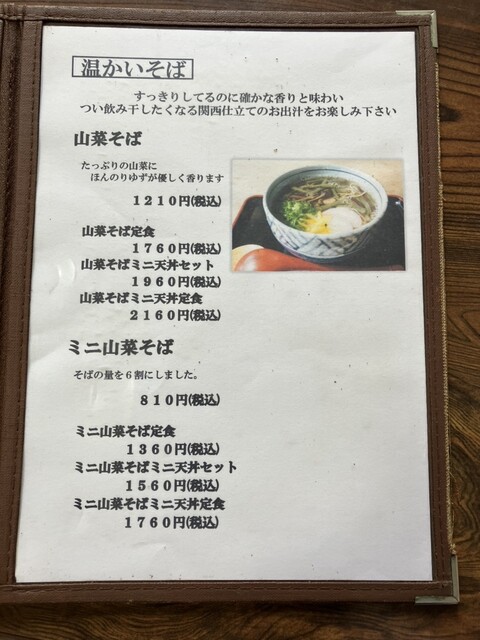 温かいそば
すっきりしてるのに確かな香りと味わい
つい飲み干したくなる関西仕立てのお出汁をお楽しみ下さい
山菜そば
たっぷりの山菜に
ほんのりゆずが優しく香ります
１２１０円(税込)
山菜そば定食
１７６０円(税込)
山菜そばミニ天丼セット
１９６０円(税込)
山菜そばミニ天丼定食
２１６０円(税込)
ミニ山菜そば
そばの量を６割にしました。
８１０円(税込)
ミニ山菜そば定食
１３６０円(税込)
ミニ山菜そばミニ天丼セット
１５６０円(税込)
ミニ山菜そばミニ天丼定食
１７６０円(税込)